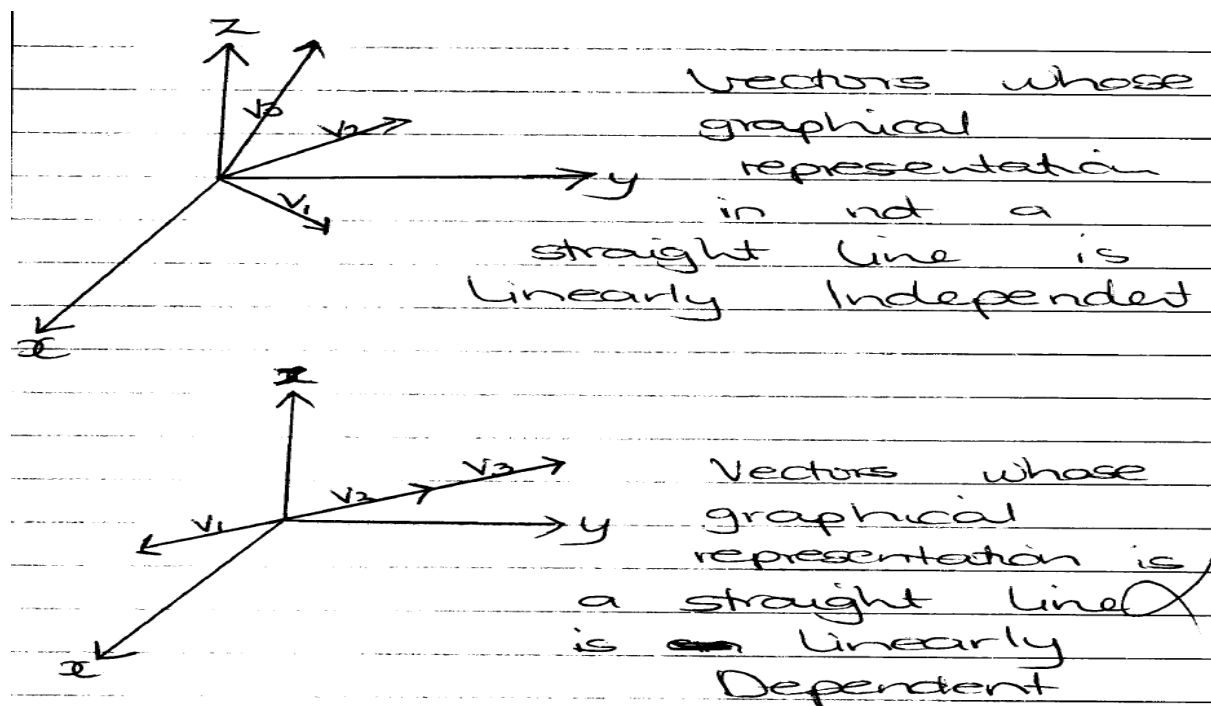 z
V3
V2
Vectors whose
graphical
representation
y
in not a
V1
straight line is
Linearly Independet
x
z
V3
V2
V1
Vectors whose
y
graphical
representation is
a straight line
is Linearly
x
Dependent